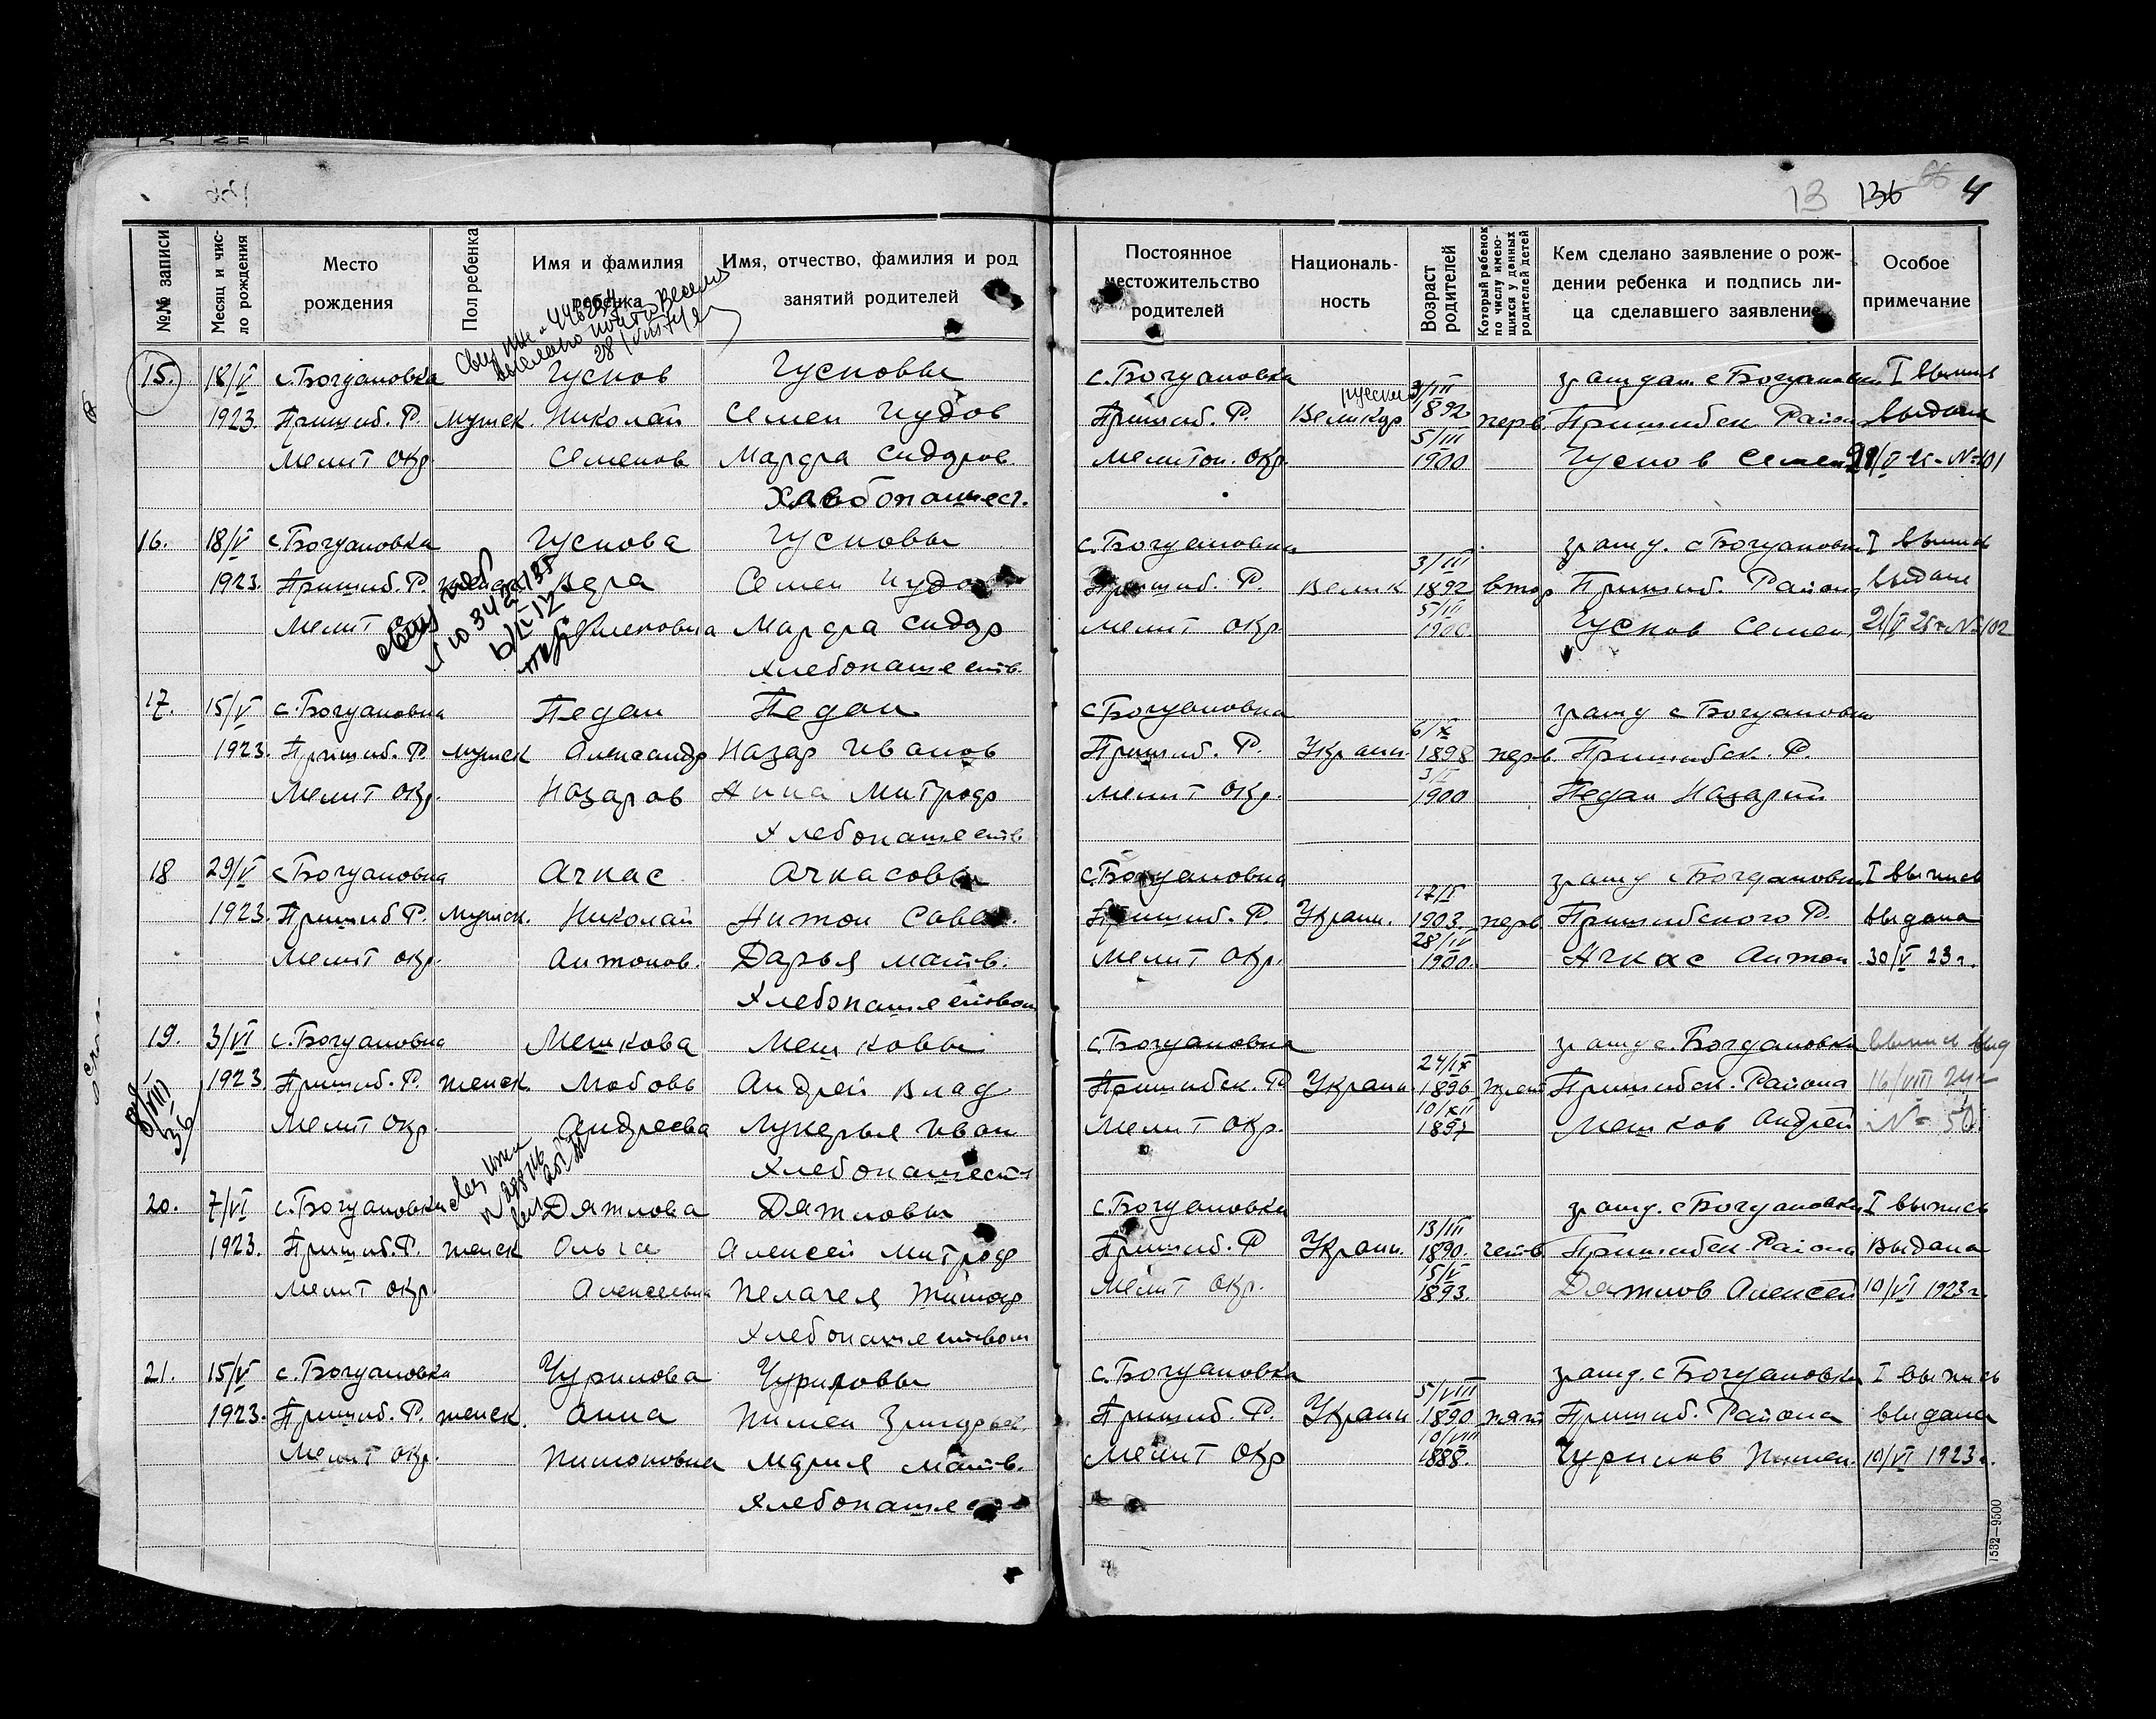 13 136 66 4
№№ записи
Месяц и чис-
ло рождения
Место
рождения
Пол ребенка
Имя и фамилия
ребенка
Имя, отчество, фамилия и род
занятий родителей
Постоянное
местожительство
родителей
Националь-
ность
Возраст
родителей
Который ребенок
по числу имею-
щихся у данных
родителей детей
Кем сделано заявление о рож-
дении ребенка и подпись ли-
ца сделавшего заявление
Особое
примечание
15. 18/V с.Богдановка Гуснов Гусновы с.Богдановка 3/III граждан. с Богдановки I выпись
1923. Пришиб. Р. мужск. Николай Семен русский 1892 перв. Пришибск. Района выдана
Мелит окр. Семенов Марфа Сидоров. Мелитоп. окр. 5/III 1900 Гуснов Семен №101
Хлебопашест.
16. 18/V с.Богдановка Гуснова Гусновы с.Богдановка 3/III гражд. с Богдановки I выпись
1923. Пришиб. Р. Вера Семен Пришиб. Р. Велик 1892 втор Пришиб. Района выдана
Мелит Марфа Сидор Мелит окр 5/III 1900. Гуснов Семен 21/V 25г №102
Хлебопашеств.
17. 15/V с.Богдановка Педан Педан с Богдановка 6/X гражд с Богдановки
1923. Пришиб. Р. мужск Александр Назар Иванов Пришиб. Р. Украин. 1898 перв. Пришибск. Р.
Мелит окр. Назаров Анна Митроф Мелит окр. 1900 Педан Назарий
Хлебопашеств
18 29/V с Богдановка Ачкас Ачкасовы с.Богдановка гражд с Богдановки I выпись
1923. Пришиб Р. мужск. Николай Антон Савел. Пришиб. Р. Украин. 1903. перв. Пришибского Р. выдана
Мелит окр. Антонов. Дарья Матв. Мелит окр. 28/IV 1900. Ачкас Антон 30/V 23г.
Хлебопашеством
19. 3/VI с.Богдановка Мешкова Мешковы с.Богдановка 24/IX гражд с. Богдановки выпись выд
1923 Пришиб. Р. женск. Любовь Андрей Влад Пришибск. Р Украин. 1896 Пришибск. Района 16/VIII
Мелит окр. Андреева Лукерья Иван Мелит окр. 10/XII 1897 Мешков Андрей № 50
Хлебопашест
20. 7/VI с.Богдановка Дятлова Дятловы с.Богдановка 13/III гражд. с Богдановки I выпись
1923. Пришиб. Р. женск Ольга Алексей Митроф Пришиб. Р Украин. 1890. четв. Пришибск. Района выдана
Мелит окр Алексеевна Пелагея Мелит окр. 15/V 1893. Дятлов Алексей 10/VI 1923г.
Хлебопашеством
21. 15/V с.Богдановка Чурилова Чуриловы с.Богдановка 5/VIII гражд. с Богдановки I выпись
1923. Пришиб. Р. женск. Анна Пимен Пришиб. Р. Украин 1890 пят Пришиб. Района выдана
Мелит окр. Пимоновна Мария Матв. Мелит окр 10/VIII 1888. Чурилов Пимен. 10/VI 1923г.
Хлебопашеств
1532—9500